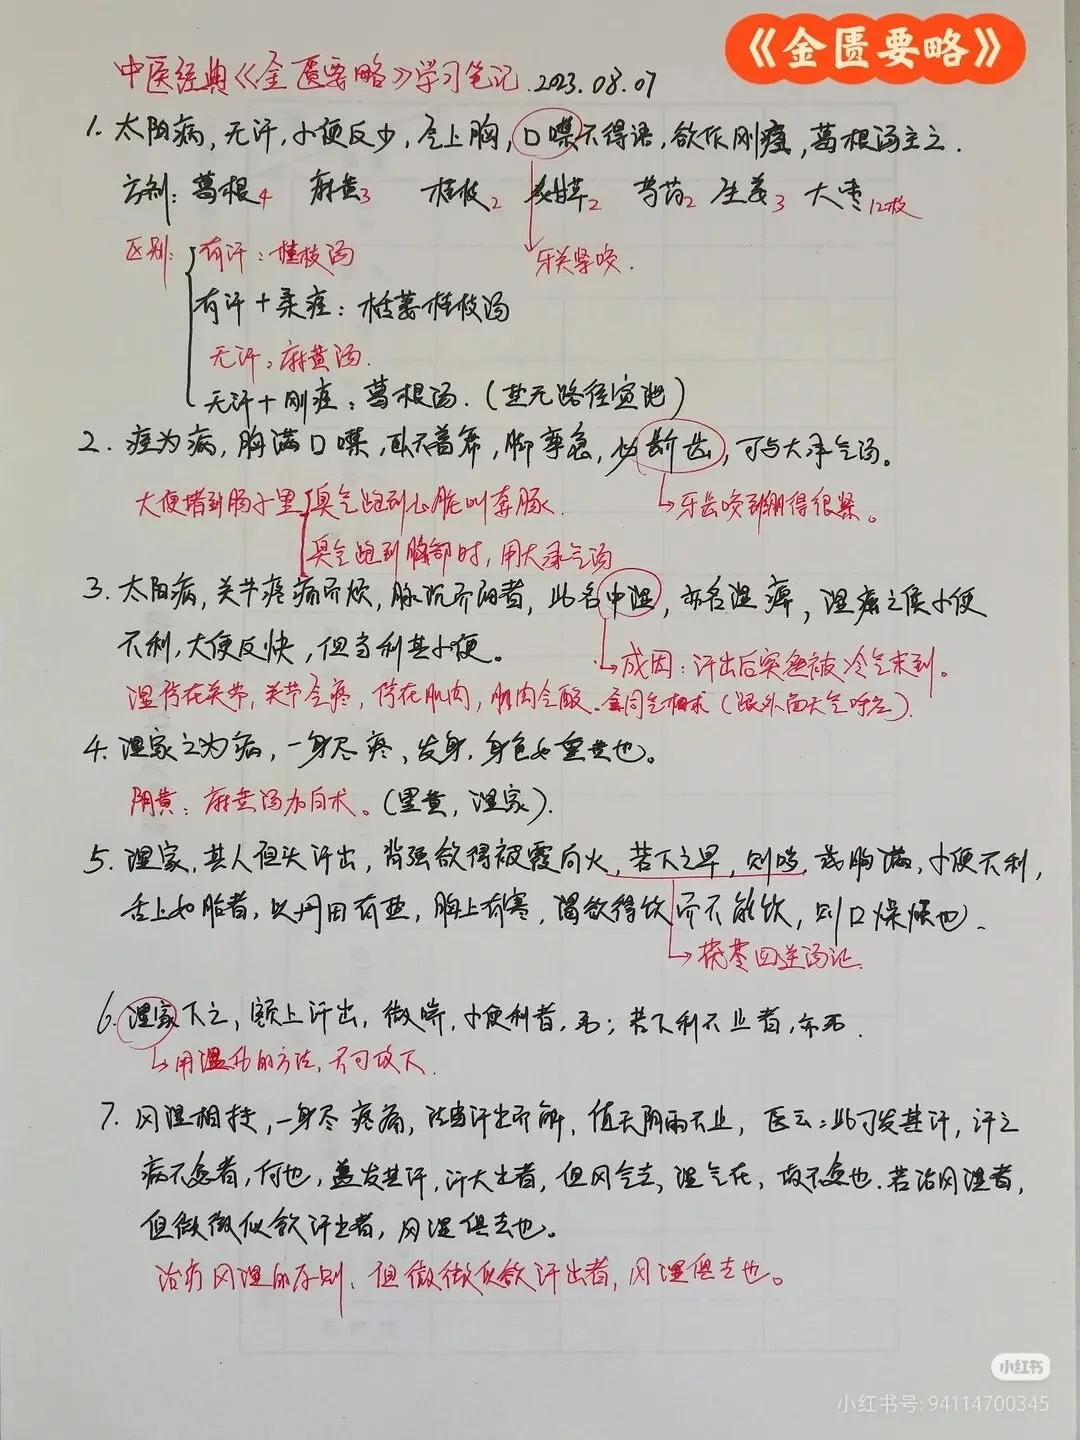 《金匮要略》
中医经典《金匮要略》学习笔记 2023.08.07
1. 太阳病，无汗，小便反少，气上胸，口噤不得语，欲作刚痉，葛根汤主之．
方剂：葛根4 麻黄3 桂枝2 炙甘草2 芍药2 生姜3 大枣12枚
区别： 有汗：桂枝汤
牙关紧咬．
有汗＋柔痉：栝蒌桂枝汤
无汗：麻黄汤．
无汗＋刚痉：葛根汤．（
2. 痉为病，胸满口噤，卧不着席，脚挛急，必断齿，可与大承气汤。
大便堵到肠子里 臭气跑到心脏叫奔豚．
→牙齿咬到绷得很紧。
臭气跑到胸部时，用大承气汤
3. 太阳病，关节疼痛而烦，脉沉而细者，此名中湿，亦名湿痹，湿痹之候小便
不利，大便反快，但当利其小便。
→成因：汗出后突然被冷气束到。
湿停在关节，关节会疼，停在肌肉，肌肉会酸．会同气相求（跟外面天气呼应）．
4. 湿家之为病，一身尽疼、发身，身色如熏黄也。
阴黄：麻黄汤加白术。（里黄，湿家）．
5. 湿家，其人但头汗出，背强欲得被覆向火，若下之早，则哕，或胸满，小便不利，
舌上如胎者，以丹田有热，胸上有寒，渴欲得饮而不能饮，则口燥烦也．
→茯苓四逆汤证．
6. 湿家下之，额上汗出，微喘，小便利者，死；若下利不止者，亦死．
→用温热的方法，不可攻下．
7. 风湿相抟，一身尽疼痛，法当汗出而解，值天阴雨不止，医云：此可发其汗，汗之
病不愈者，何也，盖发其汗，汗大出者，但风气去，湿气在，故不愈也．若治风湿者，
但微微似欲汗出者，风湿俱去也。
治疗风湿的原则：但微微似欲汗出者，风湿俱去也。
小红书
小红书号：94114700345